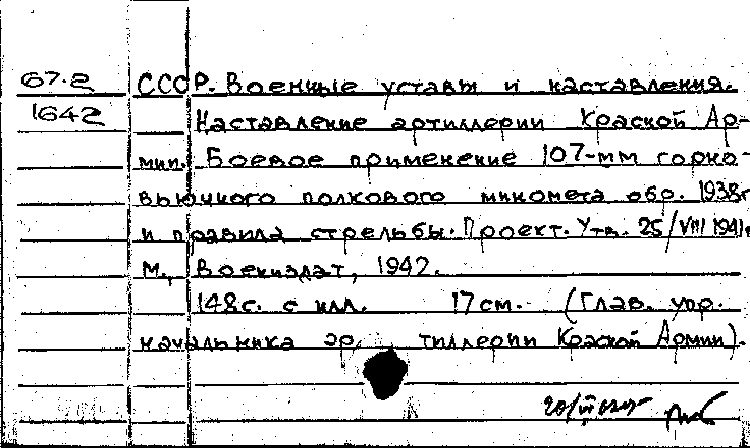 67.2 СССР. Военные уставы и наставления.
1642 Наставление артиллерии Красной Ар-
мии. Боевое применение 107-мм горно-
вьючного полкового миномета обр. 1938г
и правила стрельбы. Проект. Утв. 25/VIII 1941г
М., Воениздат, 1942.
148с. с илл. 17см. (Глав. упр.
начальника артиллерии Красной Армии).